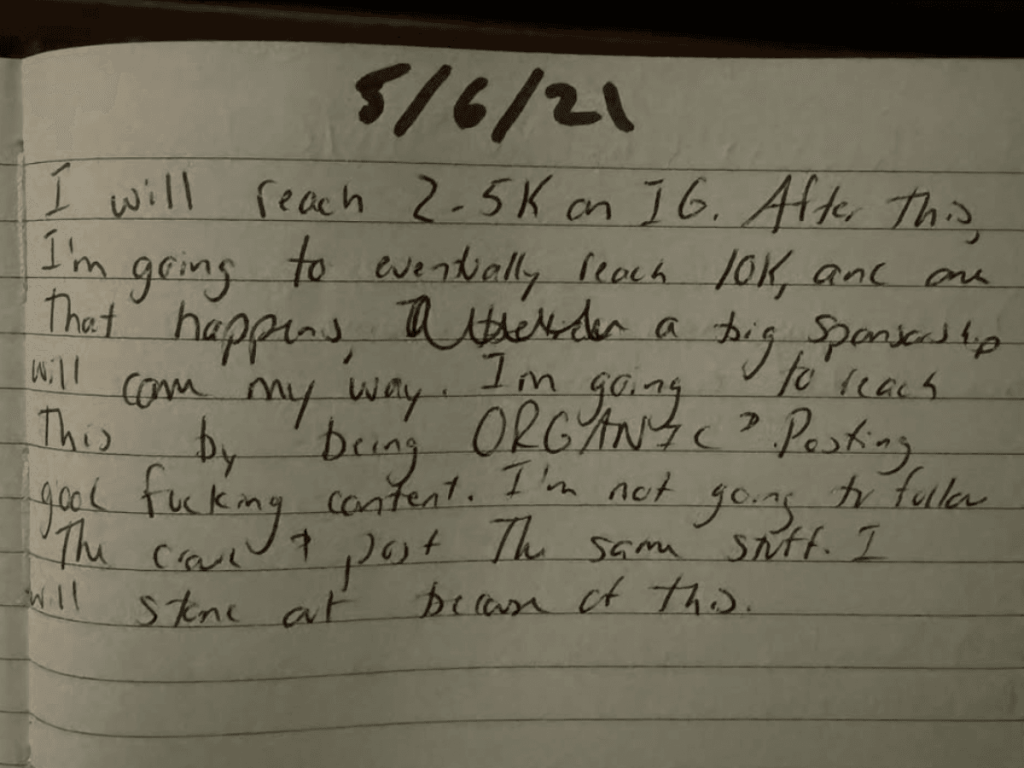 5/6/21
I will reach 2.5K on IG. After this,
I'm going to eventually reach 10K, and once
that happens, a big sponsorship
will come my way. I'm going to reach
This by being ORGANIC & Posting
good fucking content. I'm not going to follow
The crowd & post The same stuff. I
will stand out because of this.